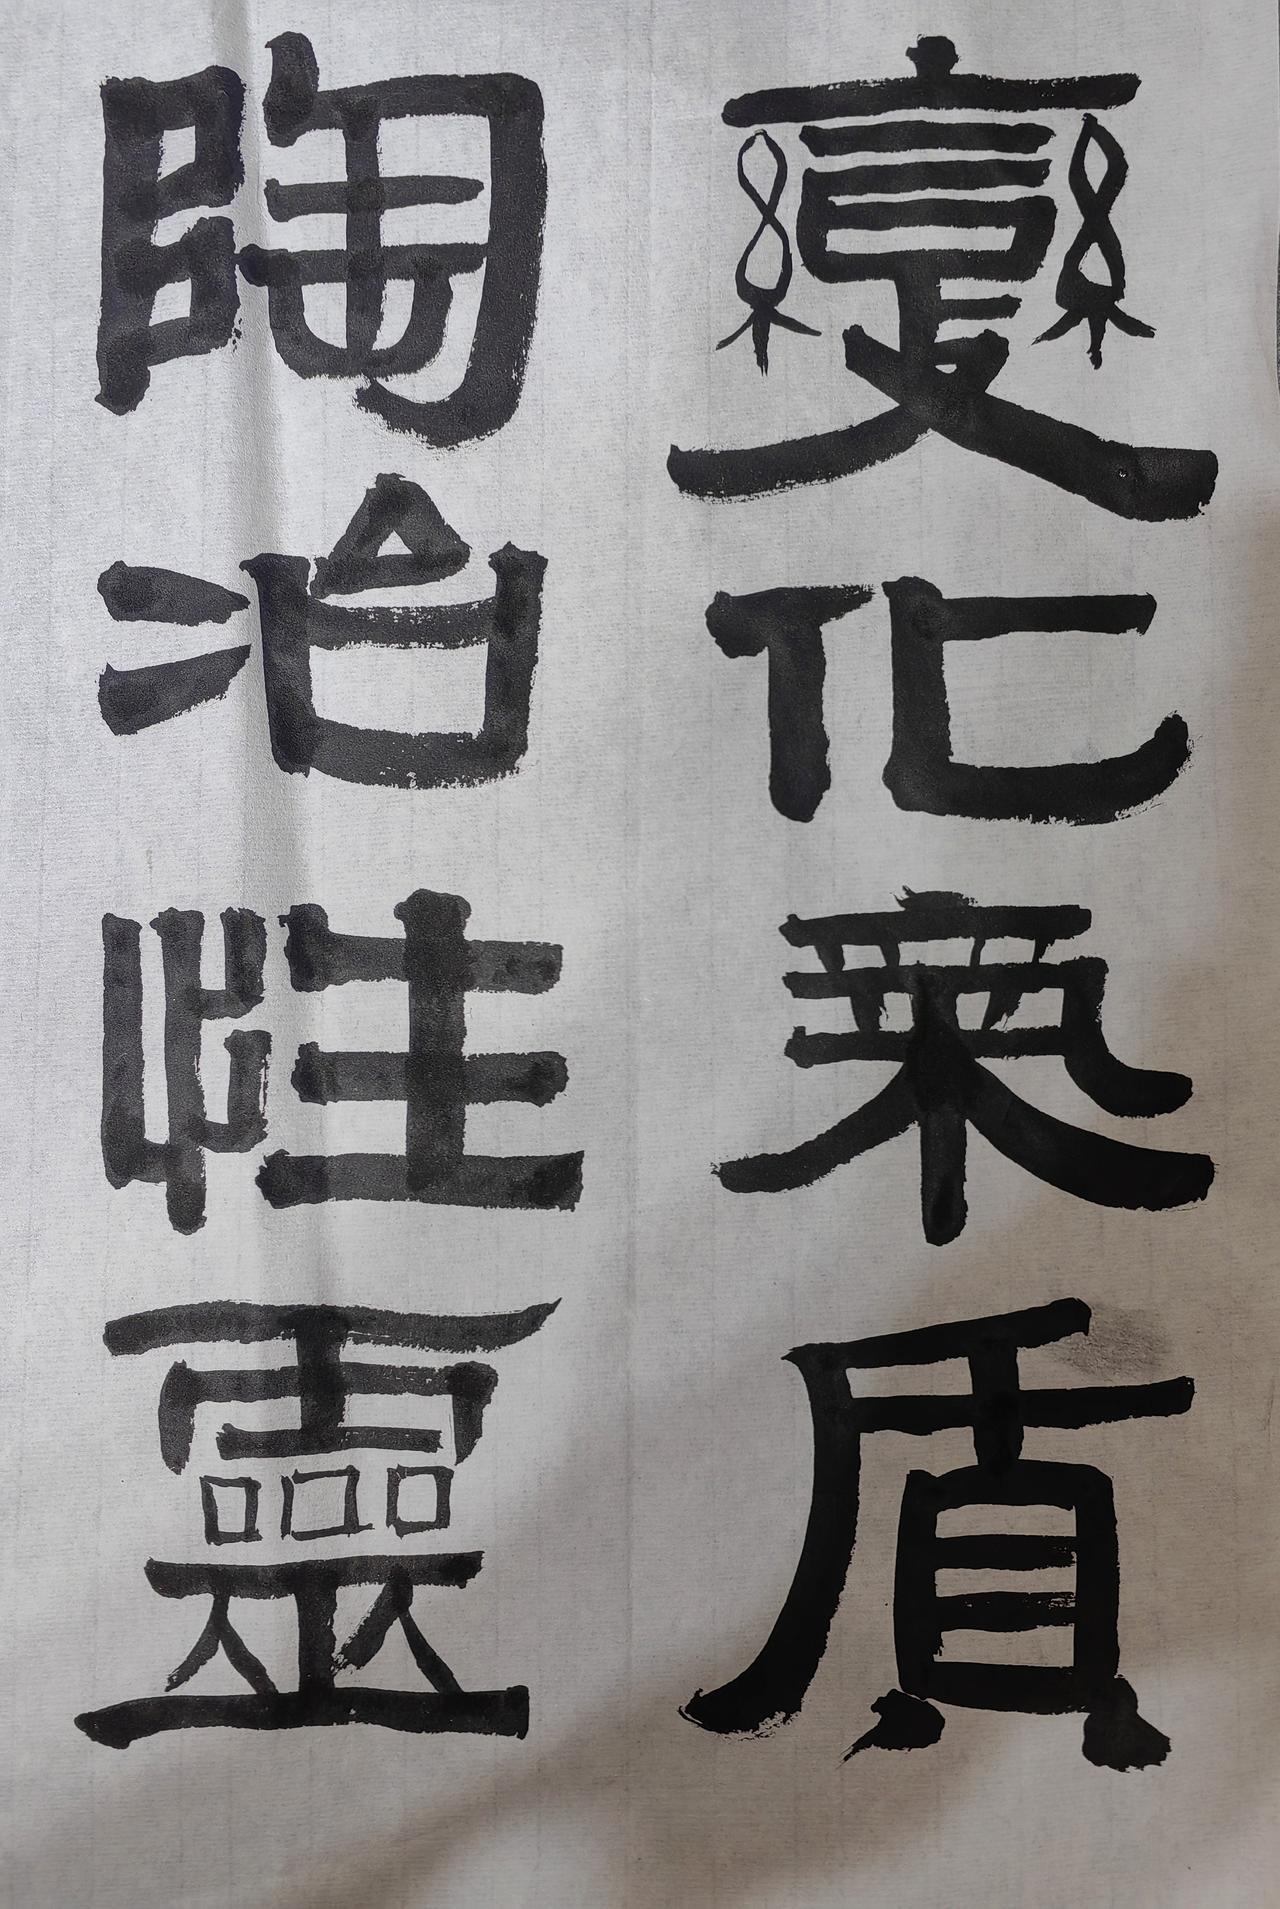 變化氣質
陶冶性靈